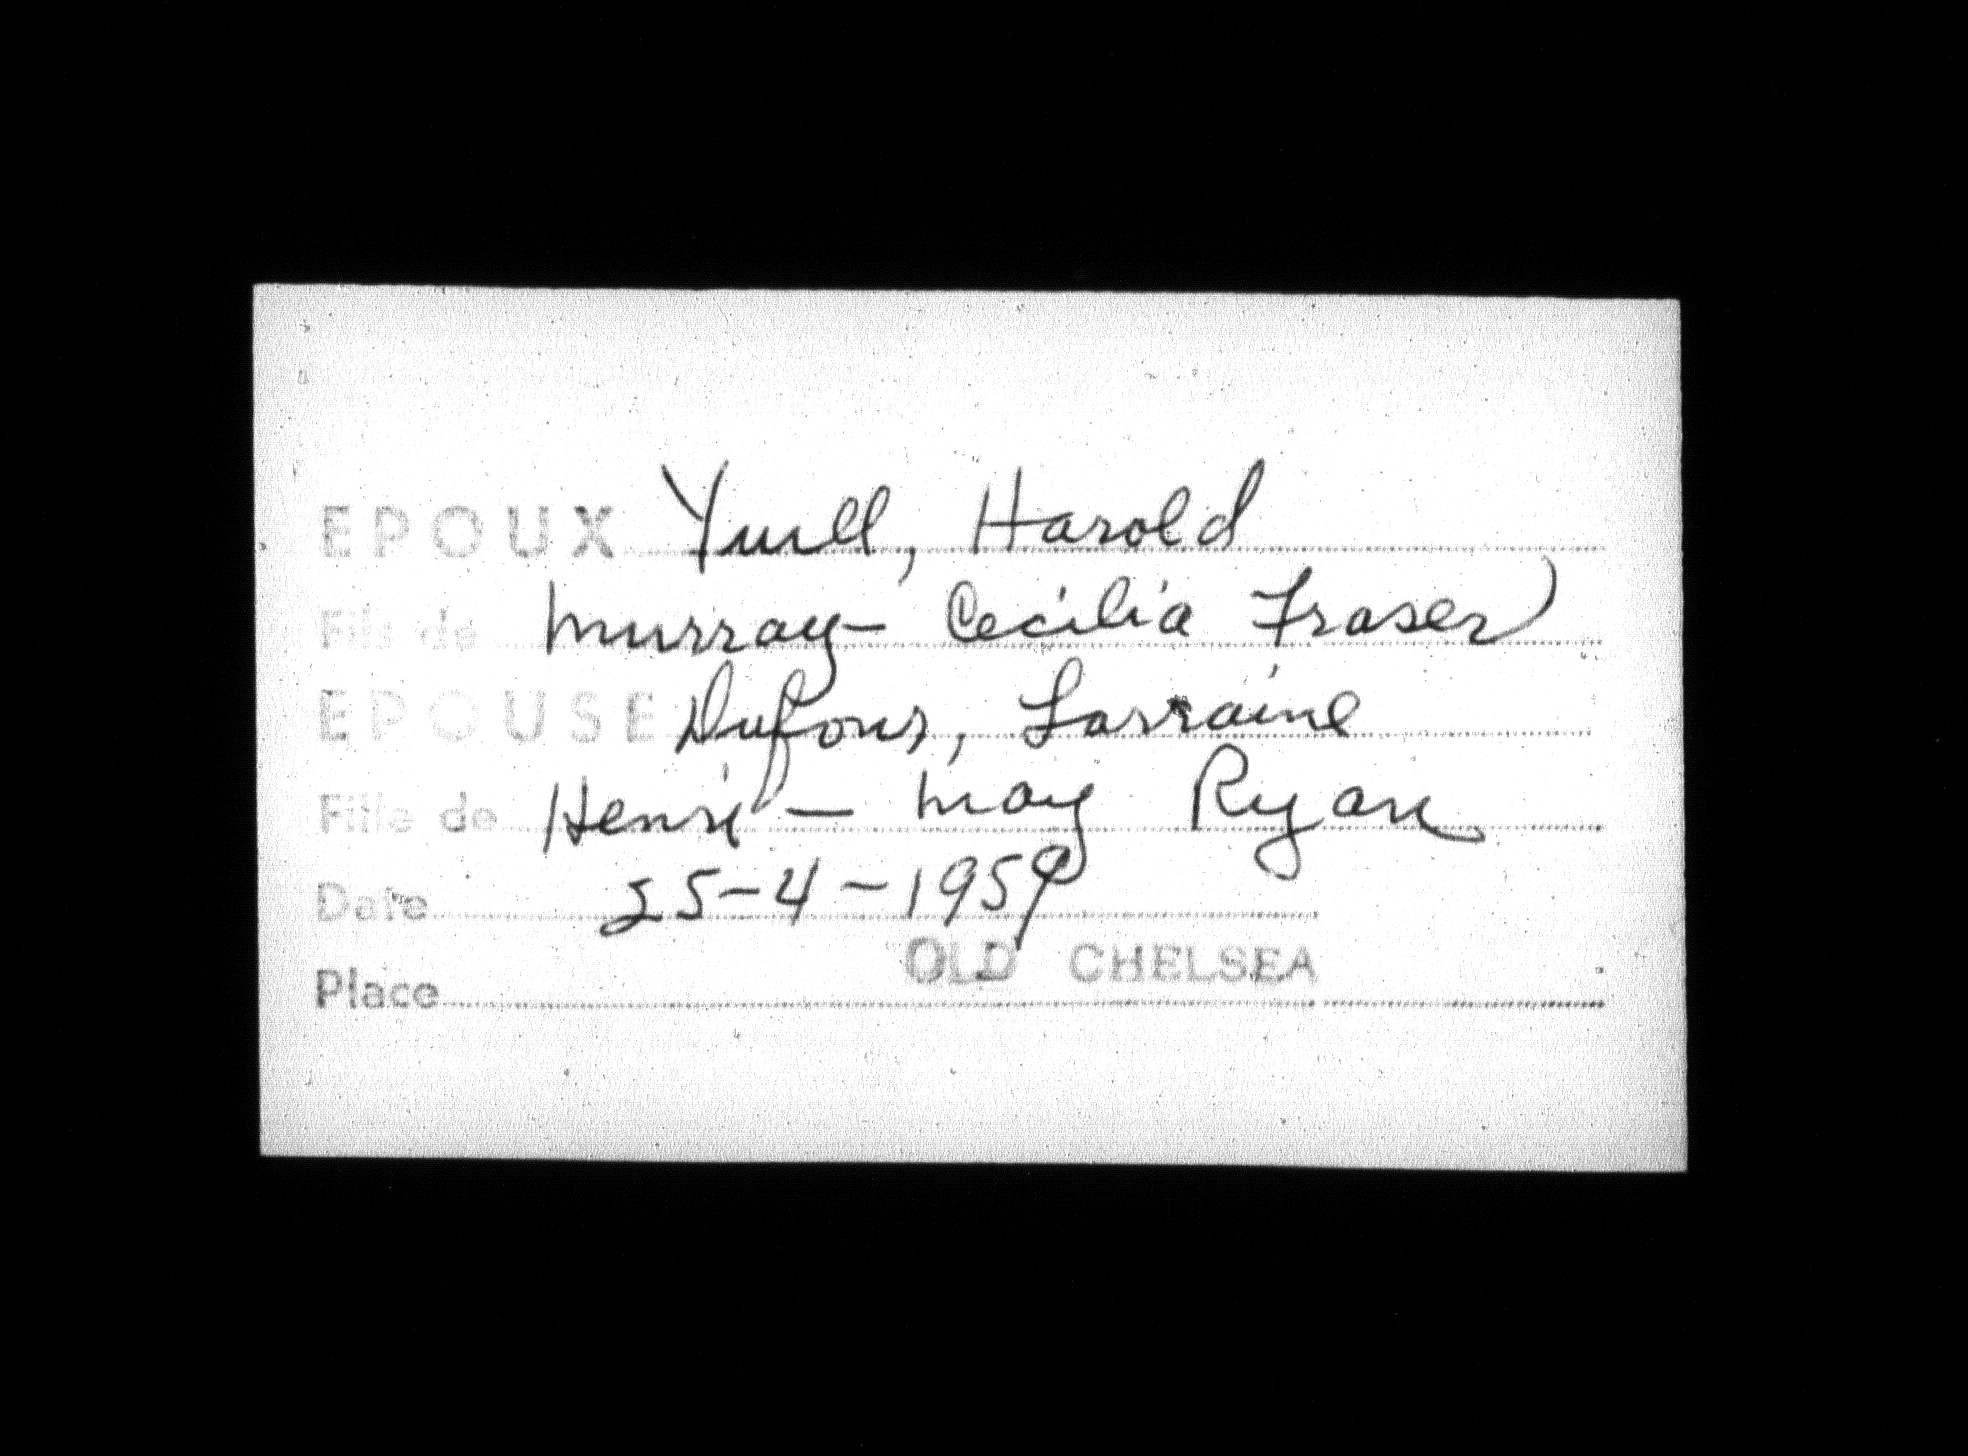 EPOUX Yuill, Harold
Fils de Murray - Cecilia Fraser
EPOUSE Dufour, Lorraine
Fille de Henri - May Ryan
Date 25-4-1959
OLD CHELSEA
Place